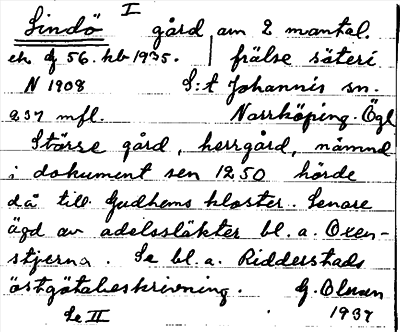 I
Lindö gård om 2 mantal.
ek bl 56. hb 1935. frälse säteri
N 1908 S:t Johannis sn.
237 mfl. Norrköping. Ögl
Större gård, herrgård, nämnd
i dokument sen 1250 hörde
då till Gudhems kloster. Senare
ägd av adelssläkter bl. a. Oxen-
stjerna. Se bl. a. Ridderstads
östgötabeskrivning. G. Olsson
Se II 1937